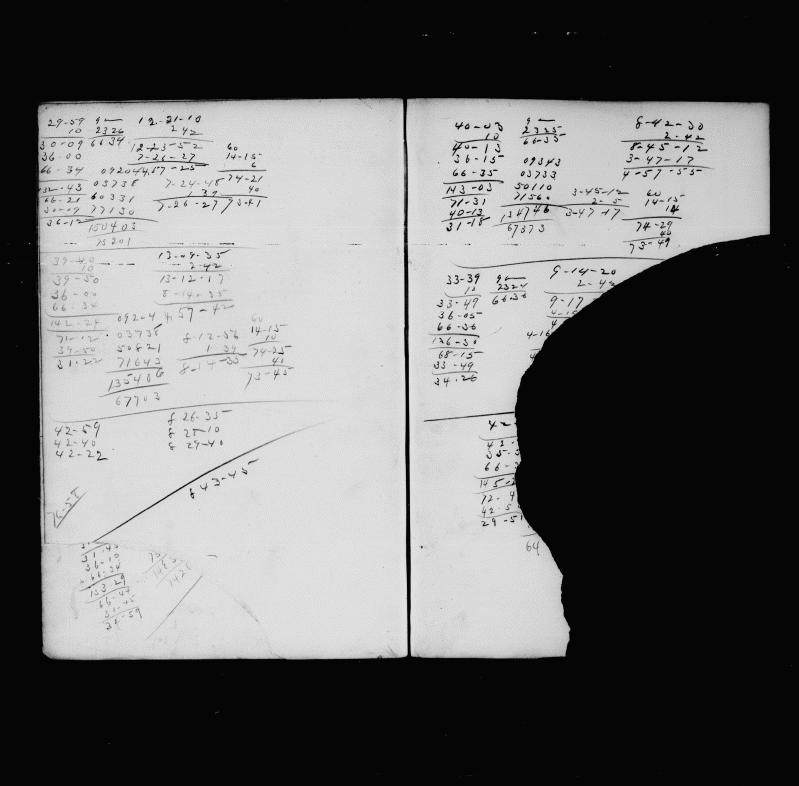 29-59 9- 12-21-10
10 2326 2 42
30-09 6634 12-23-52 60
36-00 7-26-27 14-15
66-34 09204 4 57-25 6
132-43 03738 7-24-48 74-21
66-21 60331 1 39 40
30-09 77130 7-26-27 73-41
36-12 150403
75201
39-40 13-09-35
10 2-42
39-50 13-12-17
36-00 8-14-35
66-34 4 57-42
142-24 09204 60
71-12 03738 8-12-56 14-15
39-50 50821 1 39 10
31-22 71643 8-14-35 74-25
135406 40
67703 73-45
42-59 8 26-35
42-40 8 25-10
42-22 8 29-40
8 43-45
76-58
31-45
36-10
66-34
133 29
66-44
31-45
34-59
40-03 9- 8-42-30
10 2325 2-42
40-13 66-35 8-45-12
36-15 09343 3-47-17
66-35 03733 4-57-55
143-03 50110 3-45-12 60
71-31 71560 2-5 14-15
40-13 134746 3-47 17 14
31-18 67373 74-29
40
73-49
33-39 9- 9-14-20
10 2324 2-42
33-49 66-36 9-17
36-05
66-36
136-30
68-15
33-49
34-26
42
66-
145-
72-4
42-5
29-5
64